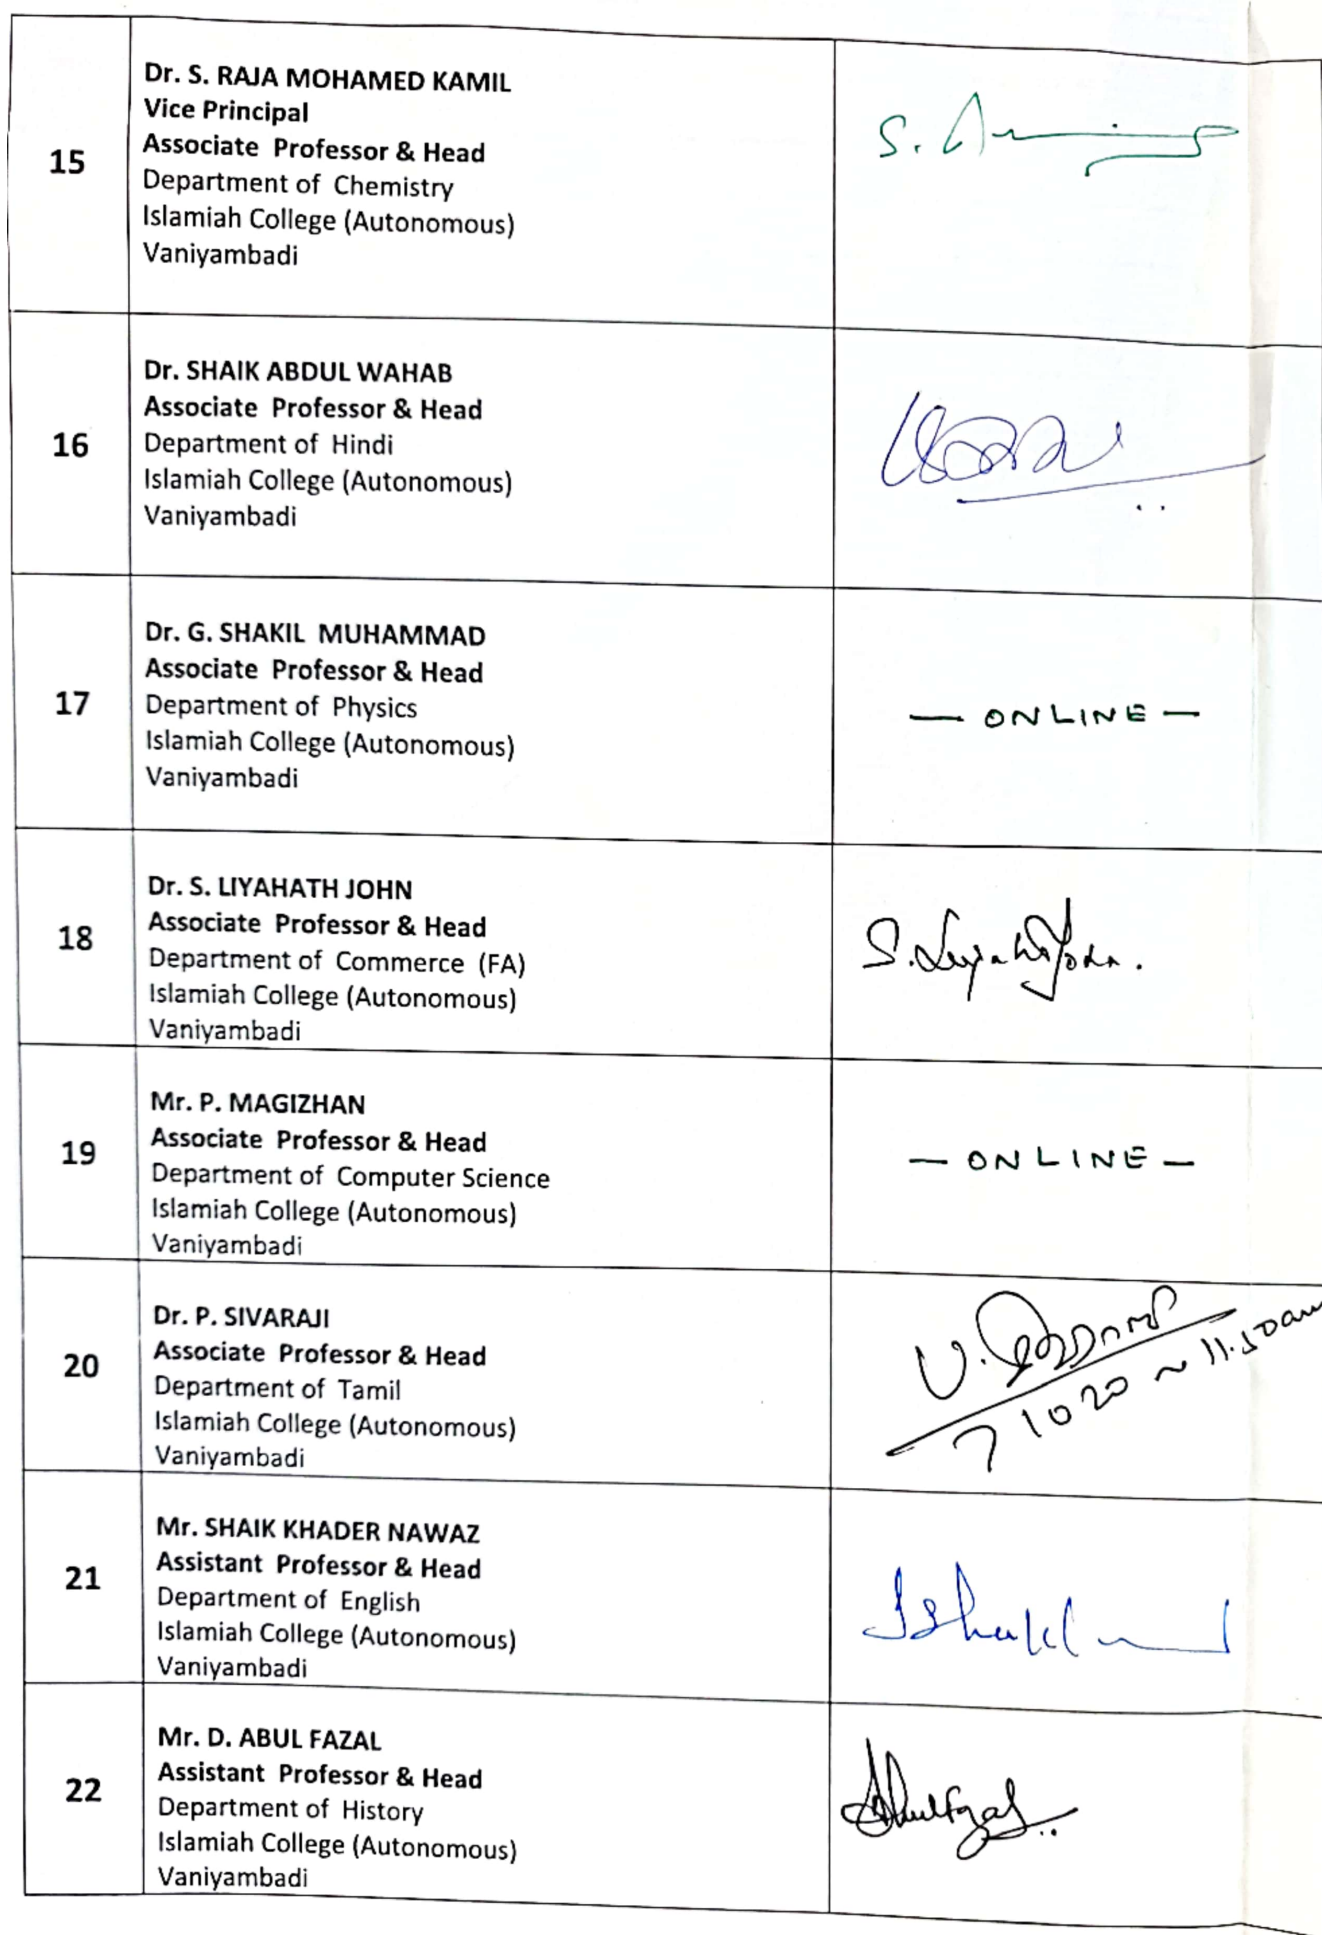 15
Dr. S. RAJA MOHAMED KAMIL
Vice Principal
Associate Professor & Head
Department of Chemistry
Islamiah College (Autonomous)
Vaniyambadi
S.
16
Dr. SHAIK ABDUL WAHAB
Associate Professor & Head
Department of Hindi
Islamiah College (Autonomous)
Vaniyambadi
17
Dr. G. SHAKIL MUHAMMAD
Associate Professor & Head
Department of Physics
Islamiah College (Autonomous)
Vaniyambadi
— ONLINE —
18
Dr. S. LIYAHATH JOHN
Associate Professor & Head
Department of Commerce (FA)
Islamiah College (Autonomous)
Vaniyambadi
S.
19
Mr. P. MAGIZHAN
Associate Professor & Head
Department of Computer Science
Islamiah College (Autonomous)
Vaniyambadi
— ONLINE —
20
Dr. P. SIVARAJI
Associate Professor & Head
Department of Tamil
Islamiah College (Autonomous)
Vaniyambadi
7 10 20 ~ 11.50am
21
Mr. SHAIK KHADER NAWAZ
Assistant Professor & Head
Department of English
Islamiah College (Autonomous)
Vaniyambadi
22
Mr. D. ABUL FAZAL
Assistant Professor & Head
Department of History
Islamiah College (Autonomous)
Vaniyambadi
Abulfazal